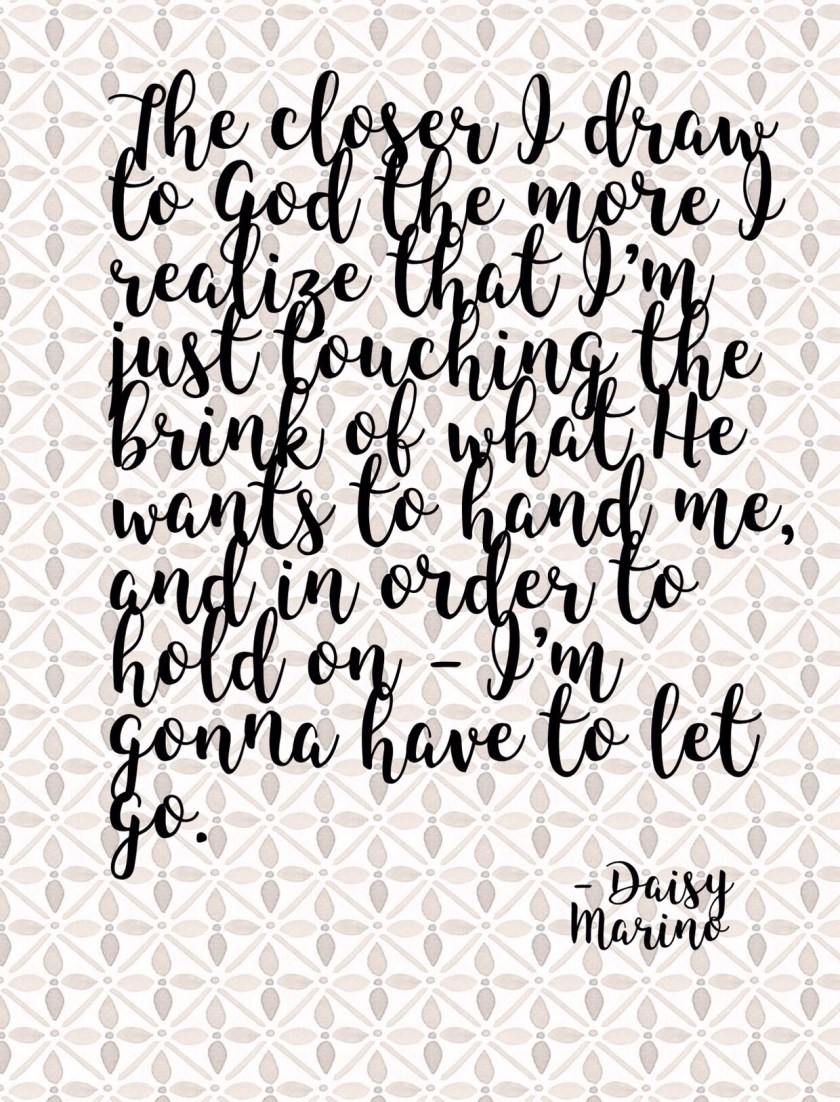 The closer I draw
to God the more I
realize that I'm
just touching the
brink of what He
wants to hand me,
and in order to
hold on – I'm
gonna have to let
go.
- Daisy
Marino